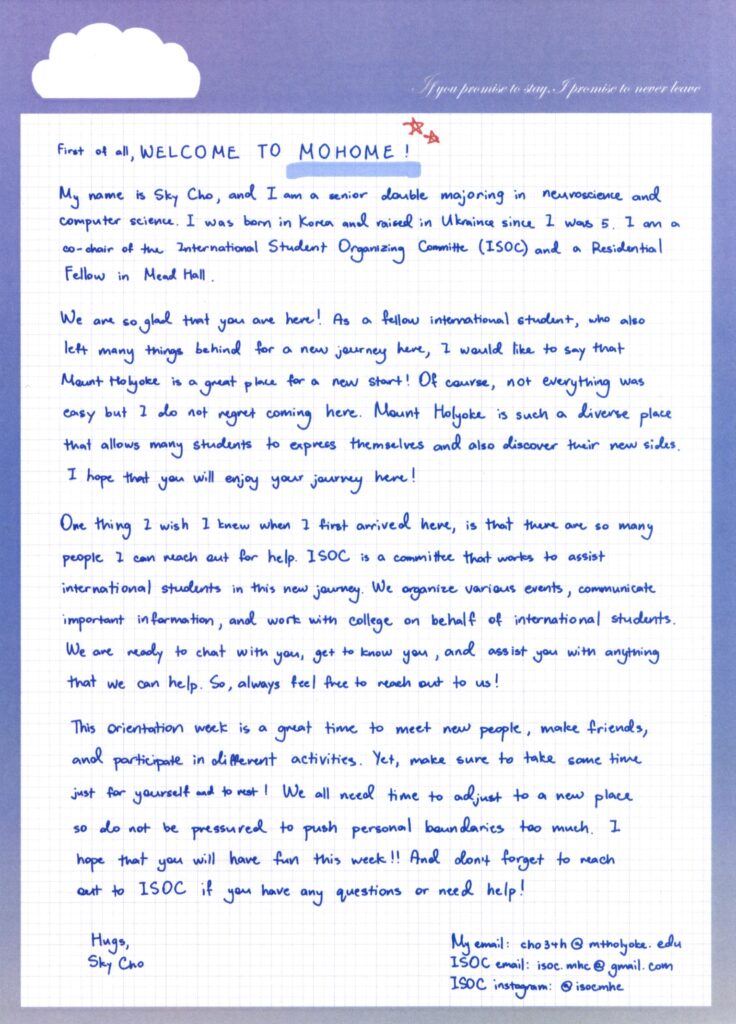 If you promise to stay, I promise to never leave
First of all, WELCOME TO MOHOME!
My name is Sky Cho, and I am a senior double majoring in neuroscience and
computer science. I was born in Korea and raised in Ukraince since I was 5. I am a
co-chair of the International Student Organizing Committe (ISOC) and a Residential
Fellow in Mead Hall.
We are so glad that you are here! As a fellow international student, who also
left many things behind for a new journey here, I would like to say that
Mount Holyoke is a great place for a new start! Of course, not everything was
easy but I do not regret coming here. Mount Holyoke is such a diverse place
that allows many students to express themselves and also discover their new sides.
I hope that you will enjoy your journey here!
One thing I wish I knew when I first arrived here, is that there are so many
people I can reach out for help. ISOC is a committee that works to assist
international students in this new journey. We organize various events, communicate
important information, and work with college on behalf of international students.
We are ready to chat with you, get to know you, and assist you with anything
that we can help. So, always feel free to reach out to us!
This orientation week is a great time to meet new people, make friends,
and participate in different activities. Yet, make sure to take some time
just for yourself and to rest! We all need time to adjust to a new place
so do not be pressured to push personal boundaries too much. I
hope that you will have fun this week!! And don't forget to reach
out to ISOC if you have any questions or need help!
Hugs,
Sky Cho
My email: cho34h@mtholyoke.edu
ISOC email: isoc.mhc@gmail.com
ISOC instagram: @isocmhc